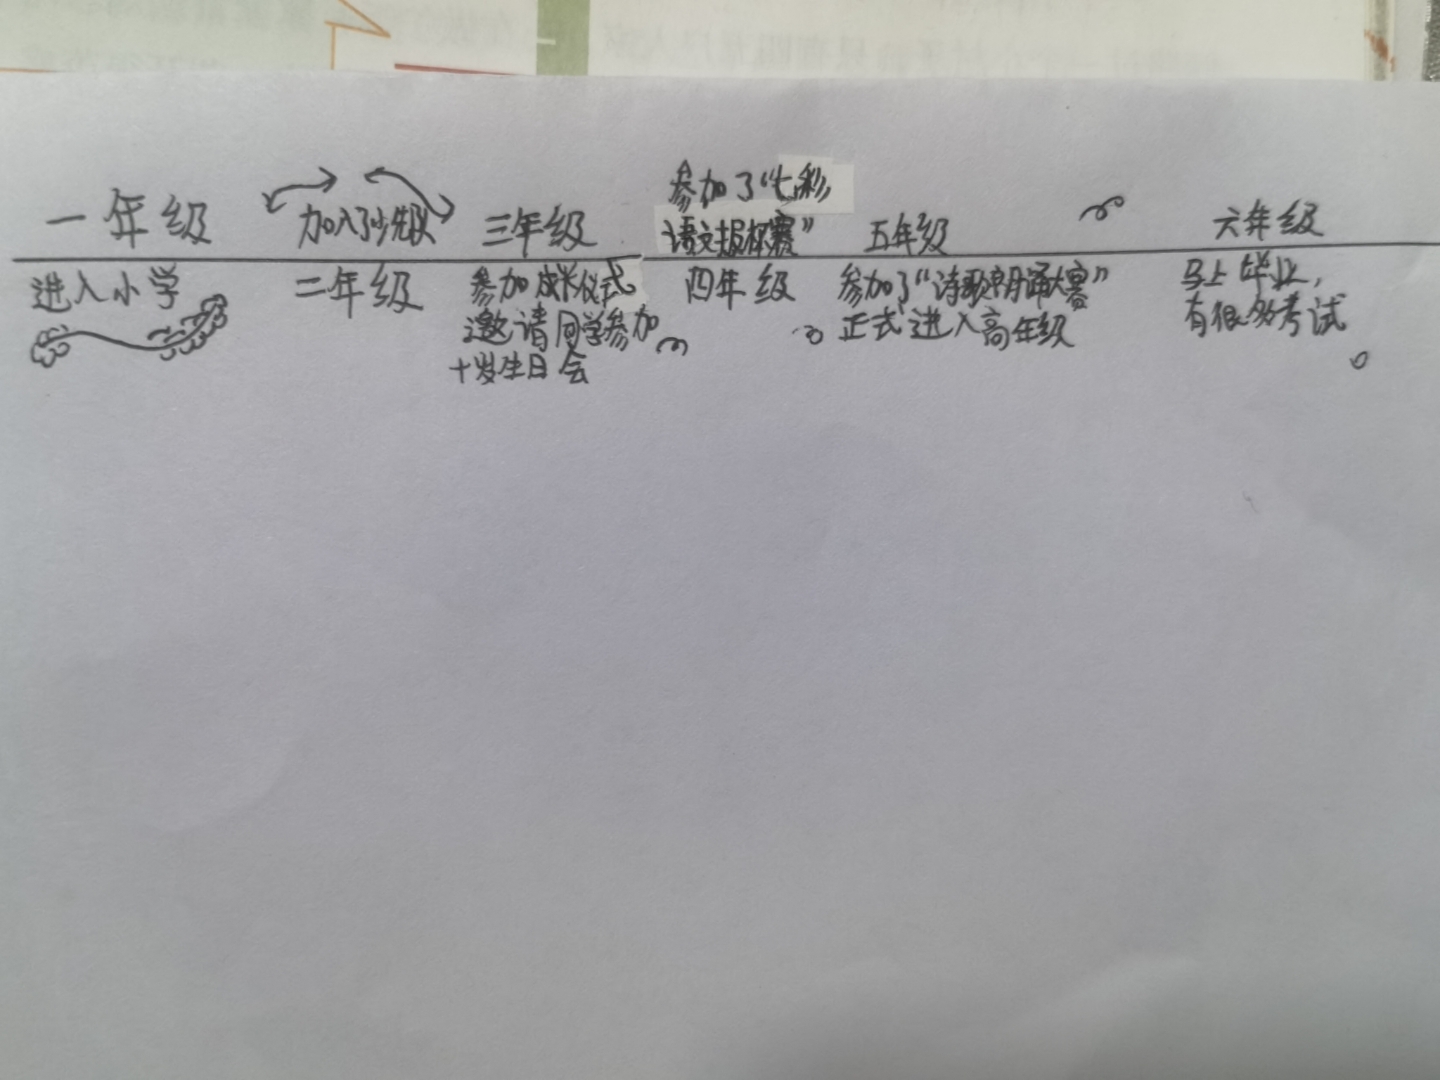 一年级
进入小学
加入了少先队
二年级
三年级
参加成长仪式
邀请同学参加
十岁生日会
参加了“七彩
语文报杯赛”
四年级
五年级
参加了“诗歌朗诵大赛”
正式进入高年级
六年级
马上毕业，
有很多考试